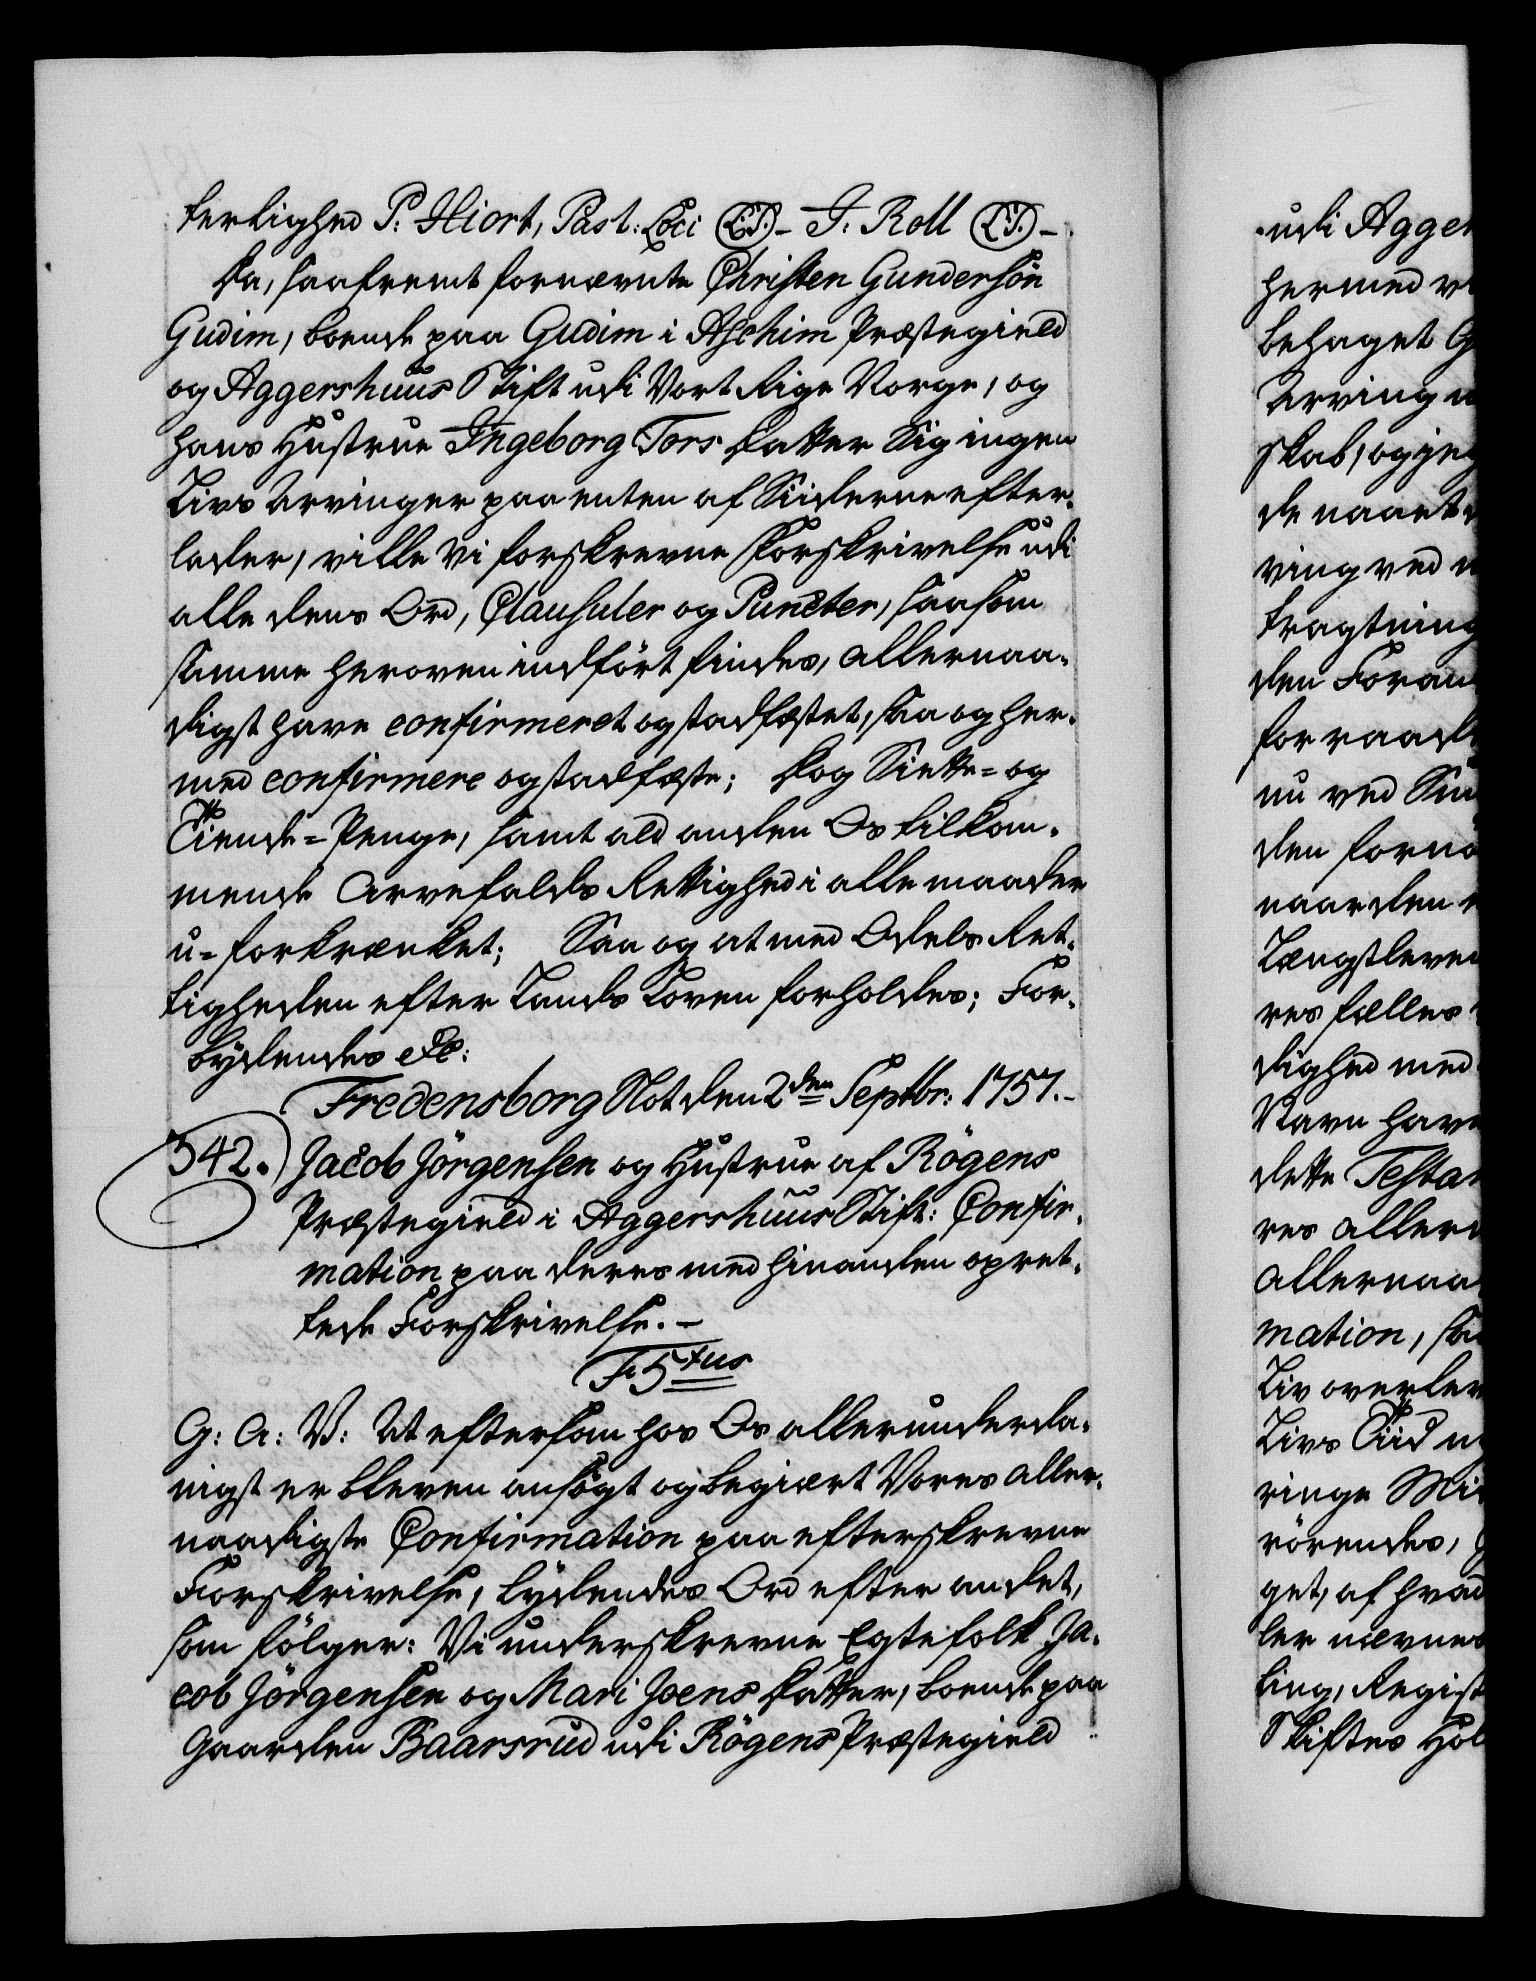 terlighed P: Hiort, Past: Loci (L.S.) – J: Roll (L.S.) –
Da, saafremt fornævnte Christen Gundersön
Gudim, boende paa Gudim i Aschim Præstegield
og Aggershuus Stift udi Vort Rige Norge, og
hans Hustrue Ingeborg Tors Datter Sig ingen
Livs Arvinger paa enten af Siiderne efter-
lader, ville Vi forskrevne Forskrivelse udi
alle dens Ord, Clausuler og Puncter, saasom
samme heroven indfört findes, allernaa-
digst have confirmeret og stadfæstet, saa og her-
med confirmere og stadfæste; Dog Siette= og
Tiende=Penge, samt ald anden Os tilkom-
mende Arvefalds Rettighed i alle maader
u=forkrænket; Saa og at med Odels Ret-
tigheden efter Lands Loven forholdes; For-
bydendes etc:
Fredensborg Slot den 2den Septbr: 1757.-
342. Jacob Jörgensen og Hustrue af Rögens
Præstegield i Aggershuus Stift: Confir-
mation paa deres med hinanden opret-
tede Forskrivelse. –
F 5tus
G: A: V: At eftersom hos Os allerunderda-
nigst er bleven ansögt og begiært Vores aller-
naadigste Confirmation paa efterskrevne
Forskrivelse, lydendes Ord efter andet,
som fölger: Vi underskrevne Egtefolk Ja-
cob Jörgensen og Mari Joens Datter, boende paa
Gaarden Baarsrud udi Rögens Præstegield
udi Agger
hermed
behaget
Arving
skab, og
de naar
ving ved
tragtning
den Foran
forraad
nu ved
den forn
naar den
Længstleven
res fælles
dighed med
Navn have
dette Testa
res aller
allernaa
mation, sa
Liv overlev
Livs Tiid
ringe Mi
rörendes,
get, af hvad
ler nævnes
ling, Regist
Skiftes Hol